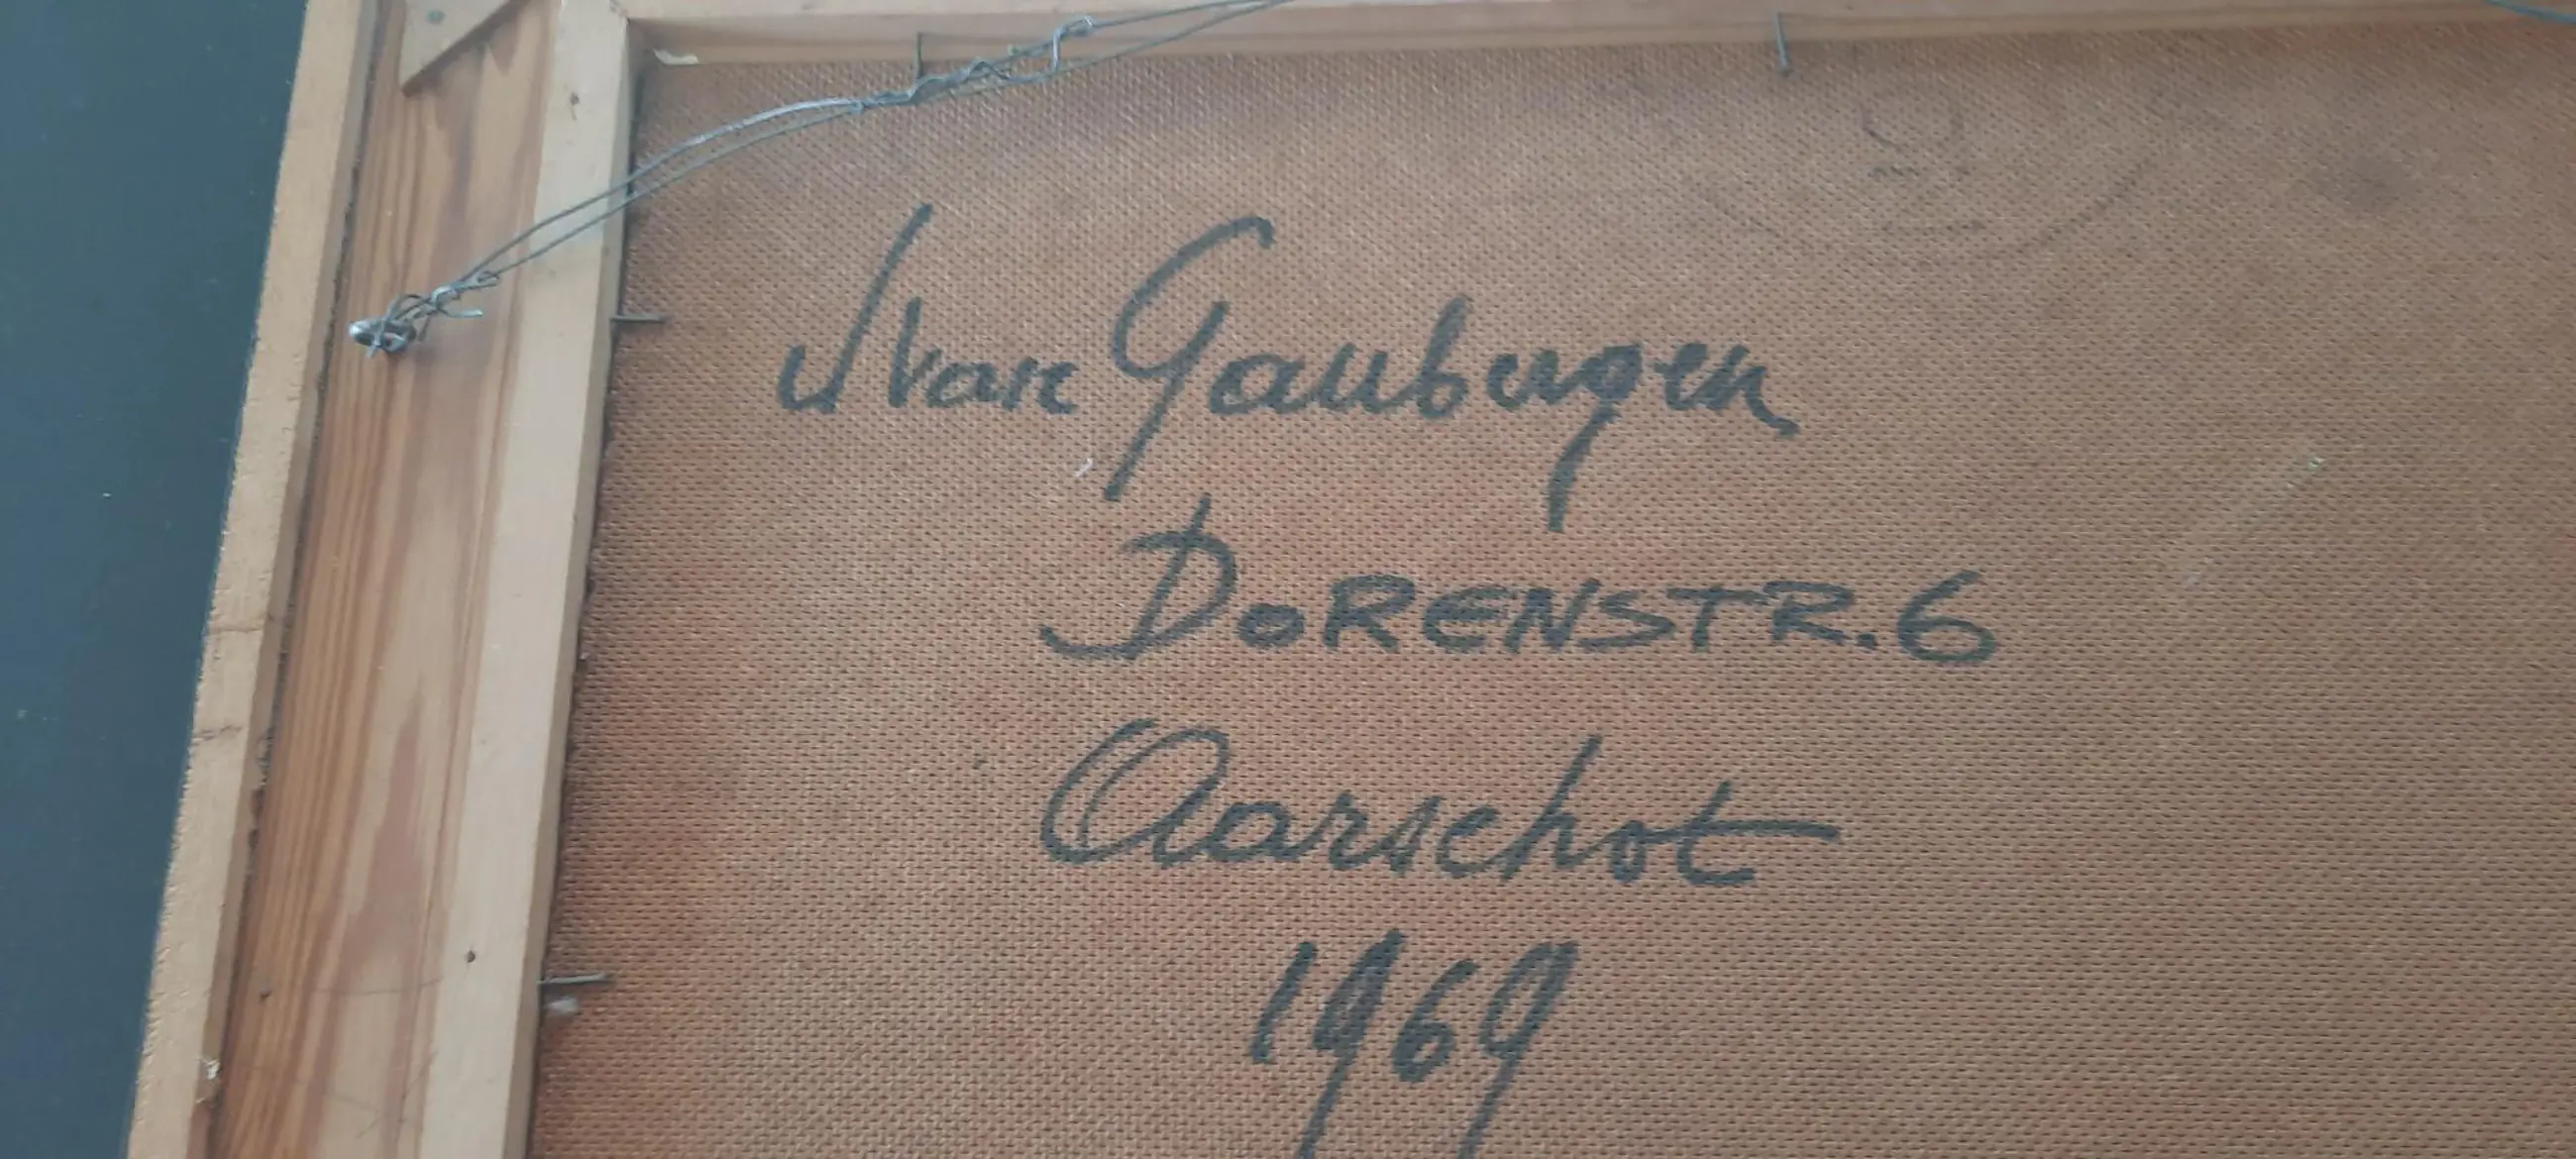 Ivan Gaubergen
DORENSTR. 6
Aarschot
1969